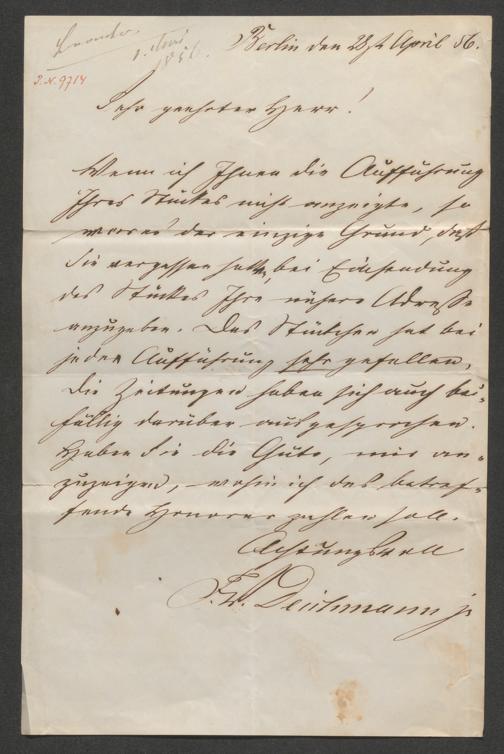 1. Mai
1856.
Berlin den 28st April 56.
I.N. 9714
Sehr geehrter Herr!
Wenn ich Ihnen die Aufführung
Ihres Stückes nicht anzeigte, so
war es der einzige Grund, daß
Sie vergessen hatten, bei Einsendung
des Stückes Ihre nähere Adresse
anzugeben. Das Stückchen hat bei
jeder Aufführung sehr gefallen,
die Zeitungen haben sich auch bei-
fällig darüber ausgesprochen.
Haben Sie die Güte, mir an-
zuzeigen, wohin ich das betref-
fende Honorar zahlen soll.
Achtungsvoll
Fr. Deichmann jr